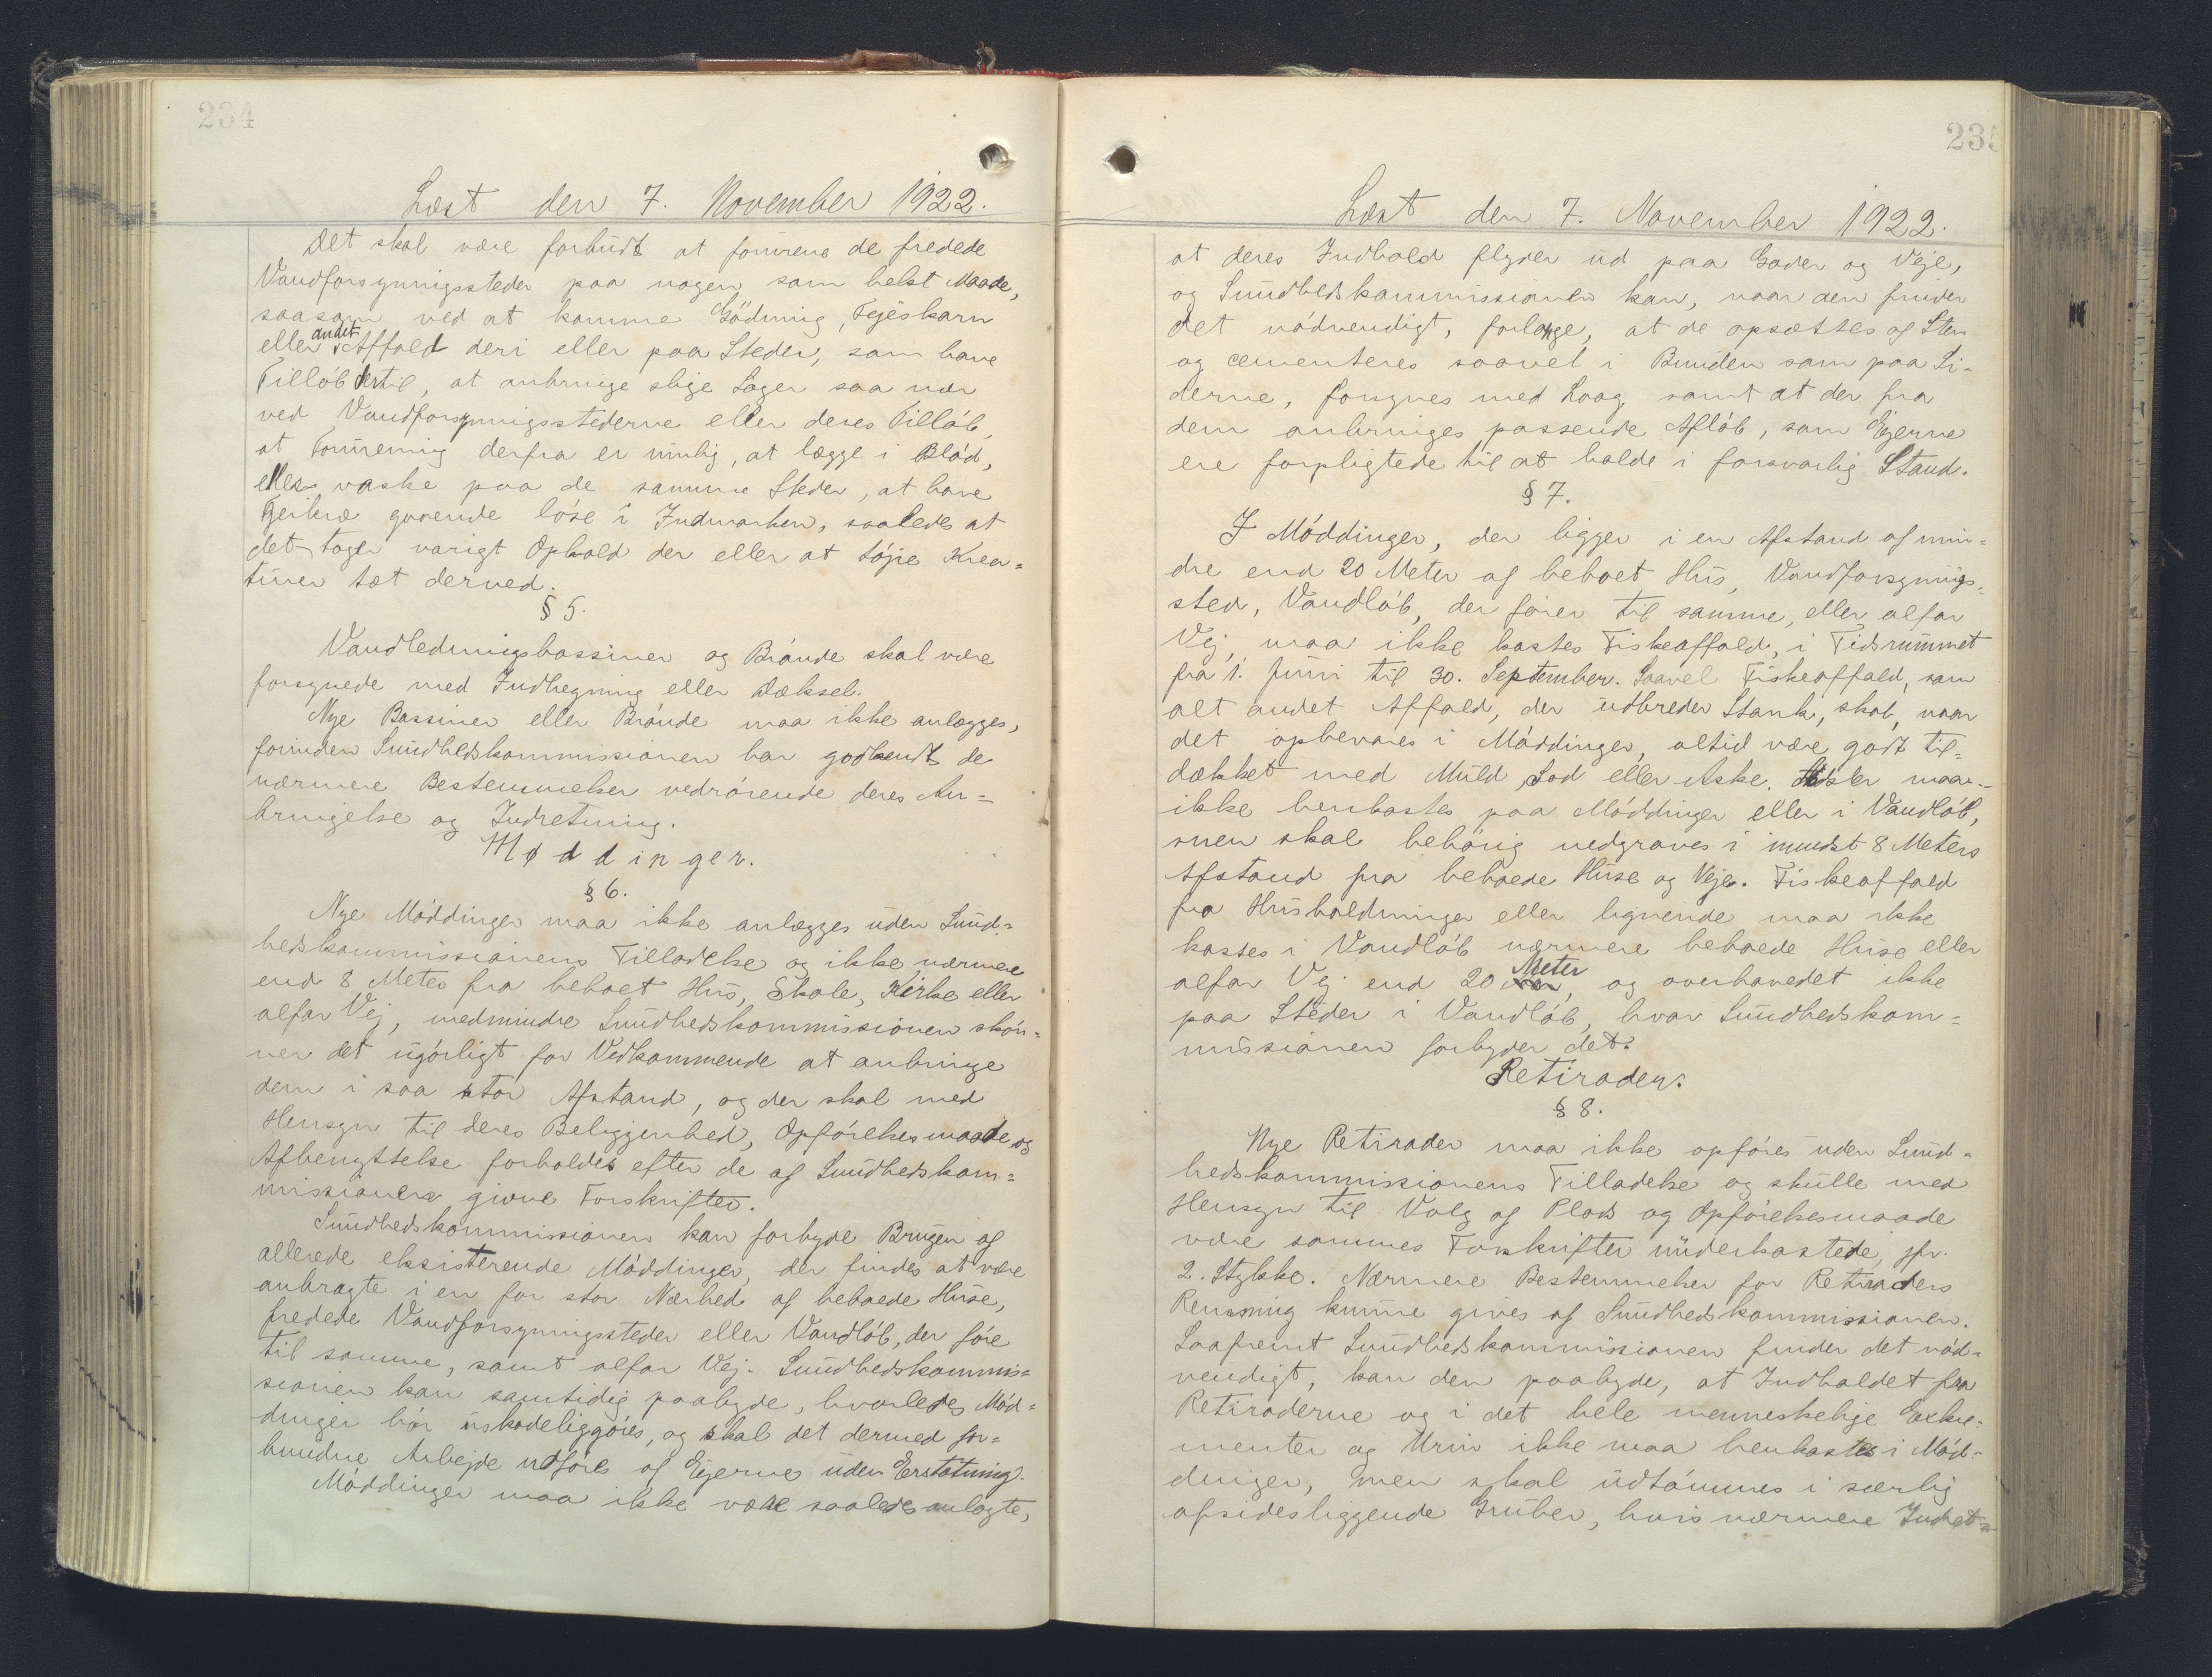 234
Læst den 7. November 1922.
Det skal være forbudt at forurene de fredede
Vandforsyningssteder paa nogen som helst Maade,
saasom ved at komme Gödning, Fejeskarn
eller andet Affald deri eller paa Steder, som have
Tillöb dertil, at anbringe slige Sager saa nær
ved Vandforsyningsstederne eller deres Tillöb,
at Forurening derfra er mulig, at lægge i Blöd,
eller vaske paa de samme Steder, at have
Fjerkræ gaaende löse i Indmarken, saaledes at
det tager varigt Ophold der eller at töjre Krea=
turer tæt derved.
§ 5.
Vandledningsbassiner og Brönde skal være
forsynede med Indhegning eller Dæksel.
Nye Bassiner eller Brönde maa ikke anlægges,
forinden Sundhedskommissionen har godkendt de
nærmere Bestemmelser vedrörende deres An=
bringelse og Indretning.
Møddinger.
§ 6.
Nye Möddinger maa ikke anlægges uden Sund=
hedskommissionens Tilladelse og ikke nærmere
end 8 Meter fra beboet Hus, Skole, Kirke eller
alfar Vej, medmindre Sundhedskommissionen skön=
ner det ugörligt for Vedkommende at anbringe
dem i saa stor Afstand, og der skal med
Hensyn til deres Beliggenhed, Opförelsesmaade og
Afbenyttelse forholdes efter de af Sundhedskom=
missionen givne Forskrifter.
Sundhedskommissionen kan forbyde Brugen af
allerede eksisterende Möddinger, der findes at være
anbragte i en for stor Nærhed af beboede Huse,
fredede Vandforsyningssteder eller Vandlöb, der före
til samme, samt alfar Vej. Sundhedskommis=
sionen kan samtidig paabyde, hvorledes Möd=
dinger bör uskadeliggöres, og skal det dermed for=
bundne Arbejde udföres af Ejerne uden Erstatning.
Möddinger maa ikke være saaledes anlagte,
235
Læst den 7. November 1922.
at deres Indhold flyder ud paa Gader og Veje,
og Sundhedskommissionen kan, naar den finder
det nödvendigt, forlange, at de opsættes af Sten
og cementeres saavel i Bunden som paa Si=
derne, forsynes med Laag samt at der fra
dem anbringes passende Aflöb, som Ejerne
ere forpligtede til at holde i forsvarlig Stand.
§ 7.
I Möddinger, der ligger i en Afstand af min=
dre end 20 Meter af beboet Hus, Vandforsynings=
sted, Vandlöb, der förer til samme, eller alfar
Vej, maa ikke kastes Fiskeaffald, i Tidsrummet
fra 1. Juni til 30. September. Saavel Fiskeaffald, som
alt andet Affald, der udbreder Stank, skal, naar
det opbevares i Möddinger, altid være godt til=
dækket med Muld, Sod eller Aske. Aadsler maa
ikke henkastes paa Möddinger eller i Vandlöb,
men skal behörig nedgraves i mindst 8 Meters
Afstand fra beboede Huse og Veje. Fiskeaffald
fra Husholdninger eller lignende maa ikke
kastes i Vandlöb nærmere beboede Huse eller
alfar Vej end 20 Meter, og overhovedet ikke
paa Steder i Vandlöb, hvor Sundhedskom=
missionen forbyder det.
Retirader.
§ 8.
Nye Retirader maa ikke opföres uden Sund=
hedskommissionens Tilladelse og skulle med
Hensyn til Valg af Plads og Opförelsesmaade
være sammes Forskrifter underkastede, jfr.
2. Stykke. Nærmere Bestemmelser for Retiraders
Rensning kunne gives af Sundhedskommissionen.
Saafremt Sundhedskommissionen finder det nöd=
vendigt, kan den paabyde, at Indholdet fra
Retiraderne og i det hele menneskelige Exkre=
menter og Urin ikke maa henkastes i Möd=
dinger, men skal udtömmes i særlig
afsidesliggende Gruber, hvis nærmere Indret=